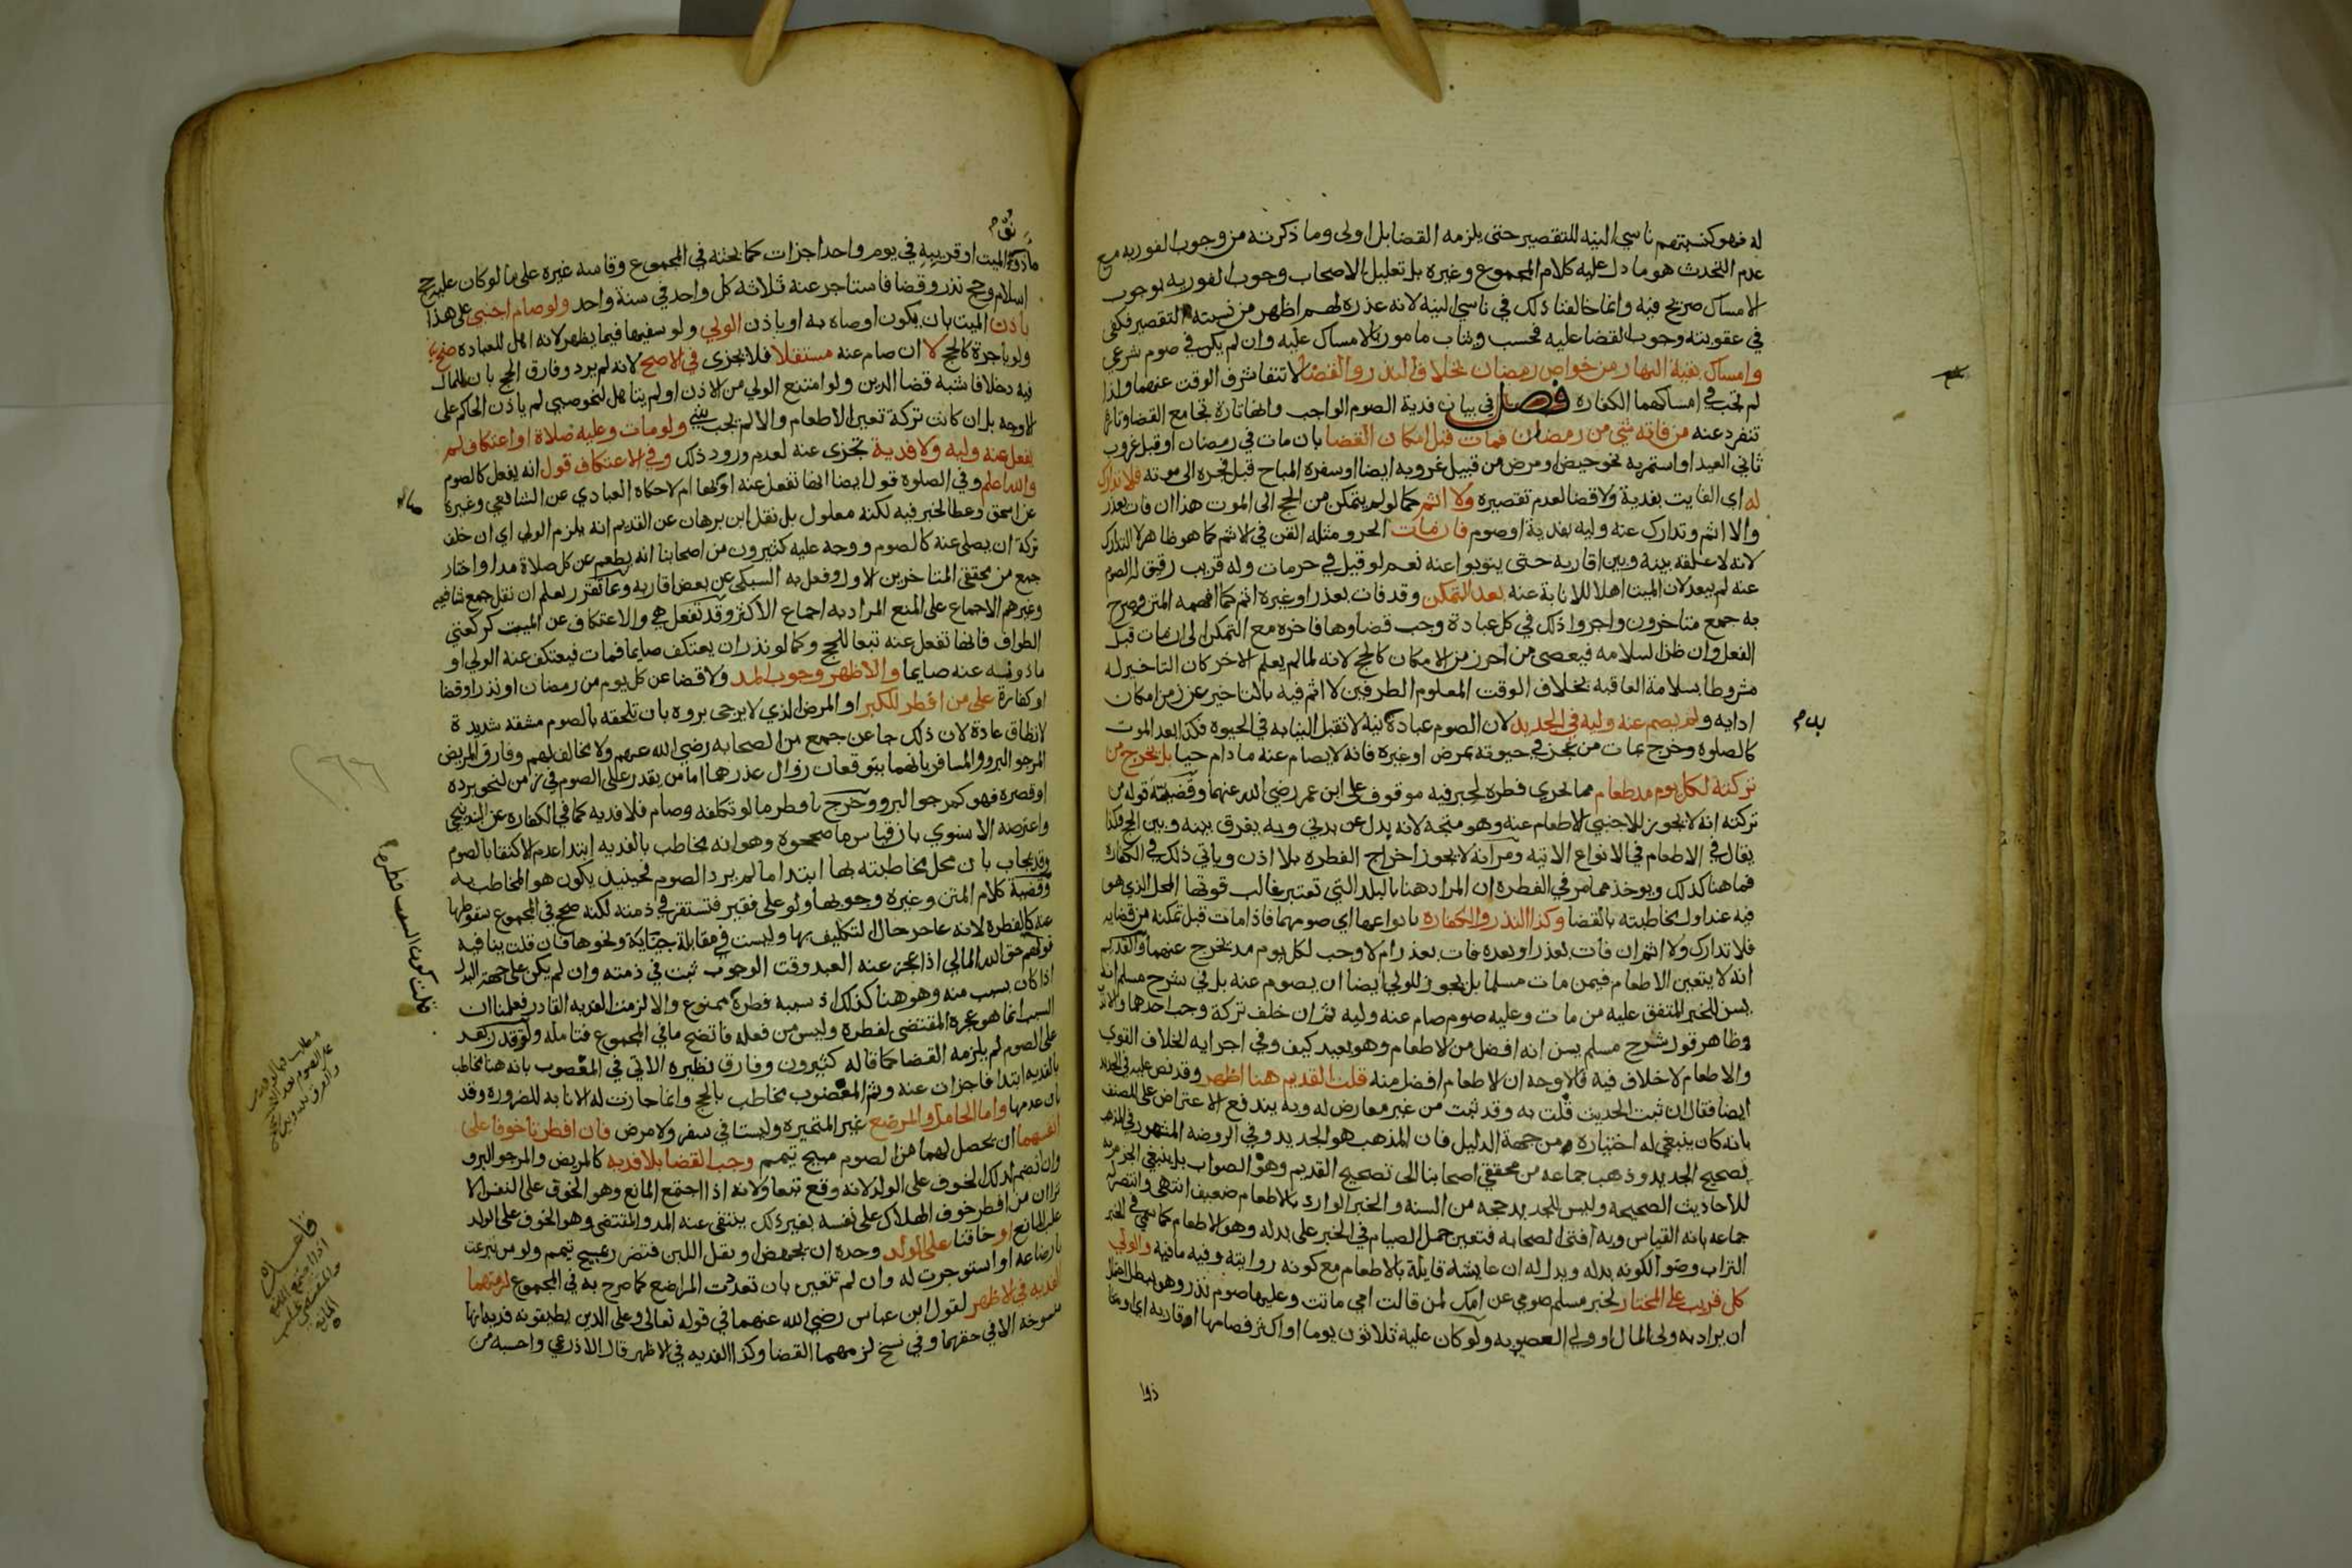 له فهو كنسبتهم ناسي النيه للتقصير حتى يلزمه القضا بل اولى وما ذكرته من وجوب الفوريه مع
عدم التحدث هو ما دل عليه كلام المجموع وغيره بل تعليل الاصحاب وجوب الفوريه بوجوب
الامساك صريح فيه وانما خالفنا ذلك في ناسي النية لانه عذره لهم اظهر من نسبته للتقصير فكفى
في عقوبته وجوب القضا عليه فحسب ويثاب مامور بالامساك عليه وان لم يكن في صوم شرعي
وامساك بقية النهار من خواص رمضان بخلاف النذر والقضا لانتفا شرف الوقت عنهما ولذا
لم تجب في افسادهما الكفاره فصل في بيان فدية الصوم الواجب وانها تارة تجامع القضا وتارة
تنفرد عنه من فاته شي من رمضان فمات قبل امكان القضا بان مات في رمضان او قبل غروب
ثاني العيد او استمر به نحو حيض او مرض من قبيل غروبه ايضا او سفره المباح قبل فجره الى موته فلا تدارك
له اي الفايت بفدية ولا قضا لعدم تقصيره ولا اثم كما لو لم يتمكن من الحج الى الموت هذا ان فات بعذر
والا اثم وتدارك عنه وليه بفدية او صوم فان مات الحر ومثله القن في الاثم كما هو ظاهر لا التدارك
لانه لا علقة بينه وبين اقاربه حتى ينوبوا عنه نعم لو قيل في حر مات وله قريب رقيق له الصوم
عنه لم يبعد لان الميت اهلا للانابة عنه بعد التمكن وقد فات بعذر او غيره اثم كما افهمه المتن وصرح
به جمع متاخرون واجروا ذلك في كل عبادة وجب قضاوها فاخره مع التمكن الى ان مات قبل
الفعل وان ظن السلامه فيعصي من اخر زمن الامكان كالحج لانه لما لم يعلم الاخر كان التاخير له
مشروطا بسلامة العاقبة بخلاف الوقت المعلوم الطرفين لا اثم فيه بالتاخير عن زمن امكان
ادايه ولم يصم عنه وليه في الجديد لان الصوم عبادة بدنيه لا تقبل النيابه في الحيوة فكذا بعد الموت
كالصلوة وخرج بمات من عجز في حيوته بمرض او غيره فانه لا يصام عنه ما دام حيا بل يخرج من
تركته لكل يوم مد طعام مما يجزي فطرة لخبر فيه موقوف على ابن عمر رضي الله عنهما وقضية قوله من
تركته انه لا يجوز للاجنبي الاطعام عنه وهو متجه لانه بدل عن بدني وبه يفرق بينه وبين الحج وكذا
يقال في الاطعام في الانواع الاتيه ومر انه لا يجوز اخراج الفطرة بلا اذن وياتي ذلك في الكفارة
فما هنا كذلك ويوخذ مما مر في الفطرة ان المراد هنا بالبلد التي تعتبر غالب قوتها المحل الذي هو
فيه عند اول مخاطبته بالقضا وكذا النذر والكفارة بانواعها اي صومهما فاذا مات قبل تمكنه من قضايه
فلا تدارك ولا اثم ان فات بعذر او بعده فات بعذر ام لا وجب لكل يوم مد يخرج عنهما والقديم
انه لا يتعين الاطعام فيمن مات مسلما بل يجوز للولي ايضا ان يصوم عنه بل في شرح مسلم انه
يسن للخبر المتفق عليه من مات وعليه صوم صام عنه وليه ثم ان خلف تركة وجب احدهما والا ندب
وظاهر قول شرح مسلم يسن انه افضل من الاطعام وهو بعيد كيف وفي اجزايه الخلاف القوي
والاطعام لا خلاف فيه فالاوجه ان الاطعام افضل منه قلت القديم هنا اظهر وقد نص عليه في الجديد
ايضا فقال ان ثبت الحديث قلت به وقد ثبت من غير معارض له وبه يندفع الاعتراض على المصنف
بانه كان ينبغي له اختياره من جهة الدليل فان المذهب هو الجديد وفي الروضة المشهور في المذهب
تصحيح الجديد وذهب جماعه من محققي اصحابنا الى تصحيح القديم وهو الصواب بل ينبغي الجزم به
للاحاديث الصحيحه وليس للجديد حجه من السنه والخبر الوارد بالاطعام ضعيف انتهى وانتصر له
جماعه بانه القياس وبه افتى الصحابه فتعين حمل الصيام في الخبر على بدله وهو الاطعام كما سمي في الخبر
التراب وضوا لكونه بدله ويدل له ان عايشة قايلة بالاطعام مع كونه روايته وفيه ما فيه والولي
كل قريب على المختار لخبر مسلم صومي عن امك لمن قالت امي ماتت وعليها صوم نذر وهو يبطل احتمال
ان يراد به ولي المال او ولي العصوبه ولو كان عليه ثلاثون يوما او اكثر فصامها اقاربه اي او ما
ذوا
نق م
ماذونو الميت او قريبه في يوم واحد اجزات كما بحثه في المجموع وقاسه غيره على ما لو كان عليه حج
اسلام وحج نذر وقضا فاستاجر عنه ثلاثه كل واحد في سنة واحد ولو صام اجنبي على هذا
باذن الميت بان يكون اوصاه به او باذن الولي ولو سفيها فيما يظهر لانه اهل للعبادة صح
ولو باجرة كالحج لا ان صام عنه مستقلا فلا يجزي في الاصح لانه لم يرد وفارق الحج بان للمال
فيه دخلا فاشبه قضا الدين ولو امتنع الولي من الاذن او لم يتاهل لنحو صبي لم ياذن الحاكم على
الاوجه بل ان كانت تركة تعين الاطعام والا لم يجب شي ولو مات وعليه صلاة او اعتكاف لم
يفعل عنه وليه ولا فدية تجزى عنه لعدم ورود ذلك وفي الاعتكاف قول انه يفعل كالصوم
والله اعلم وفي الصلوة قول ايضا انها تفعل عنه اوصى بها ام لا حكاه العبادي عن الشافعي وغيره
عن اسحق وعطا لخبر فيه لكنه معلول بل نقل ابن برهان عن القديم انه يلزم الولي اي ان خلف
تركة ان يصلي عنه كالصوم ووجه عليه كثيرون من اصحابنا انه يطعم عن كل صلاة مدا واختار
جمع من محققي المتاخرين الاول وفعل به السبكي عن بعض اقاربه وبما تقرر يعلم ان نقل جمع شافعيه
وغيرهم الاجماع على المنع المراد به اجماع الاكثر وقد تفعل هي والاعتكاف عن الميت كركعتي
الطواف فانها تفعل عنه تبعا للحج وكما لو نذر ان يعتكف صايما فمات فيعتكف عنه الولي او
ماذونه عنه صايما والاظهر وجوب المد ولا قضا عن كل يوم من رمضان او نذر او قضا
او كفارة على من افطر للكبر او المرض الذي لا يرجى بروه بان تلحقه بالصوم مشقه شديدة
لا تطاق عادة لان ذلك جا عن جمع من الصحابه رضي الله عنهم ولا مخالف لهم وفارق المريض
المرجو البرو والمسافر بانهما يتوقعان زوال عذرهما اما من يقدر على الصوم في زمن لنحو برده
او قصره فهو كمرجو البرو وخرج بافطر ما لو تكلفه وصام فلا فديه كما في الكفاره عن البندنيجي
واعترضه الاسنوي بان قياس ما صححوه وهو انه مخاطب بالفديه ابتدا عدم الاكتفا بالصوم
وقد يجاب بان محل مخاطبته بها ابتدا ما لم يرد الصوم فحينيذ يكون هو المخاطب به
وقضية كلام المتن وغيره وجوبها ولو على فقير فتستقر في ذمته لكنه صحح في المجموع سقوطها
عنه كالفطرة لانه عاجز حال التكليف بها وليست في مقابلة جناية ونحوها فان قلت ينافيه
قولهم حق الله المالي اذا عجز عنه العبد وقت الوجوب ثبت في ذمته وان لم يكن على جهة البدل
اذا كان بسبب منه وهو هنا كذلك اذ سببه فطره ممنوع والا لزمت الفديه القادر فعلمنا ان
السبب انما هو عجزه المقتضي لفطره وليس من فعله فاتضح ما في المجموع فتامله ولو قدر بعد
على الصوم لم يلزمه القضا كما قاله كثيرون وفارق نظيره الاتي في المعضوب بانه هنا مخاطب
بالفديه ابتدا فاجزات عنه وثم المعضوب مخاطب بالحج وانما جازت له الانابه للضروره وقد
بان عدمها واما الحامل والمرضع غير المتحيره وليستا في سفر ولا مرض فان افطرتا خوفا على
انفسهما ان يحصل لهما من الصوم مبيح تيمم وجب القضا بلا فديه كالمريض والمرجو البرو
وان انضم لذلك الخوف على الولد لانه وقع تبعا ولانه اذا اجتمع المانع وهو الخوف على النفس الا
ترى ان من افطر خوف الهلاك على نفسه بغير ذلك ينتفي عنه المد والمقتضي وهو الخوف على الولد
غلب المانع او خافتا على الولد وحده ان يجهض او يقل اللبن فتضرر بمبيح تيمم ولو من تبرعت
بارضاعه او استوجرت له وان لم تتعين بان تعددت المراضع كما صرح به في المجموع لزمتهما
الفديه في الاظهر لقول ابن عباس رضي الله عنهما في قوله تعالى وعلى الذين يطيقونه فديه انها
منسوخة الا في حقهما وفي نسخ لزمهما القضا وكذا الفديه في الاظهر قال الاذرعي واحسبه من
قلت كون السبب فطره م
قاعده
اذا اجتمع المانع
والمقتضي غلب
المانع